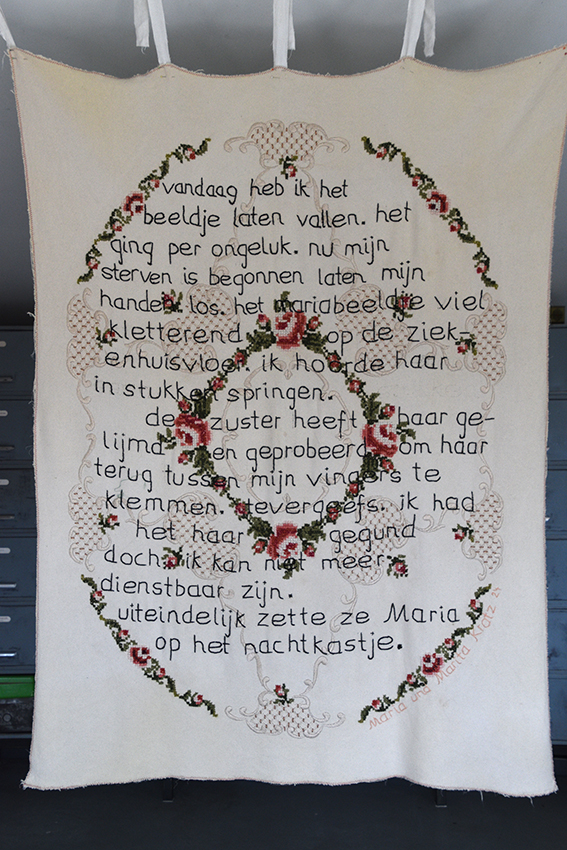 vandaag heb ik het
beeldje laten vallen. het
ging per ongeluk. nu mijn
sterven is begonnen laten mijn
handen los. het mariabeeldje viel
kletterend op de ziek-
enhuisvloer. ik hoorde haar
in stukken springen.
de zuster heeft haar ge-
lijmd en geprobeerd om haar
terug tussen mijn vingers te
klemmen. tevergeefs. ik had
het haar gegund
doch ik kan niet meer
dienstbaar zijn.
uiteindelijk zette ze Maria
op het nachtkastje.
Maria